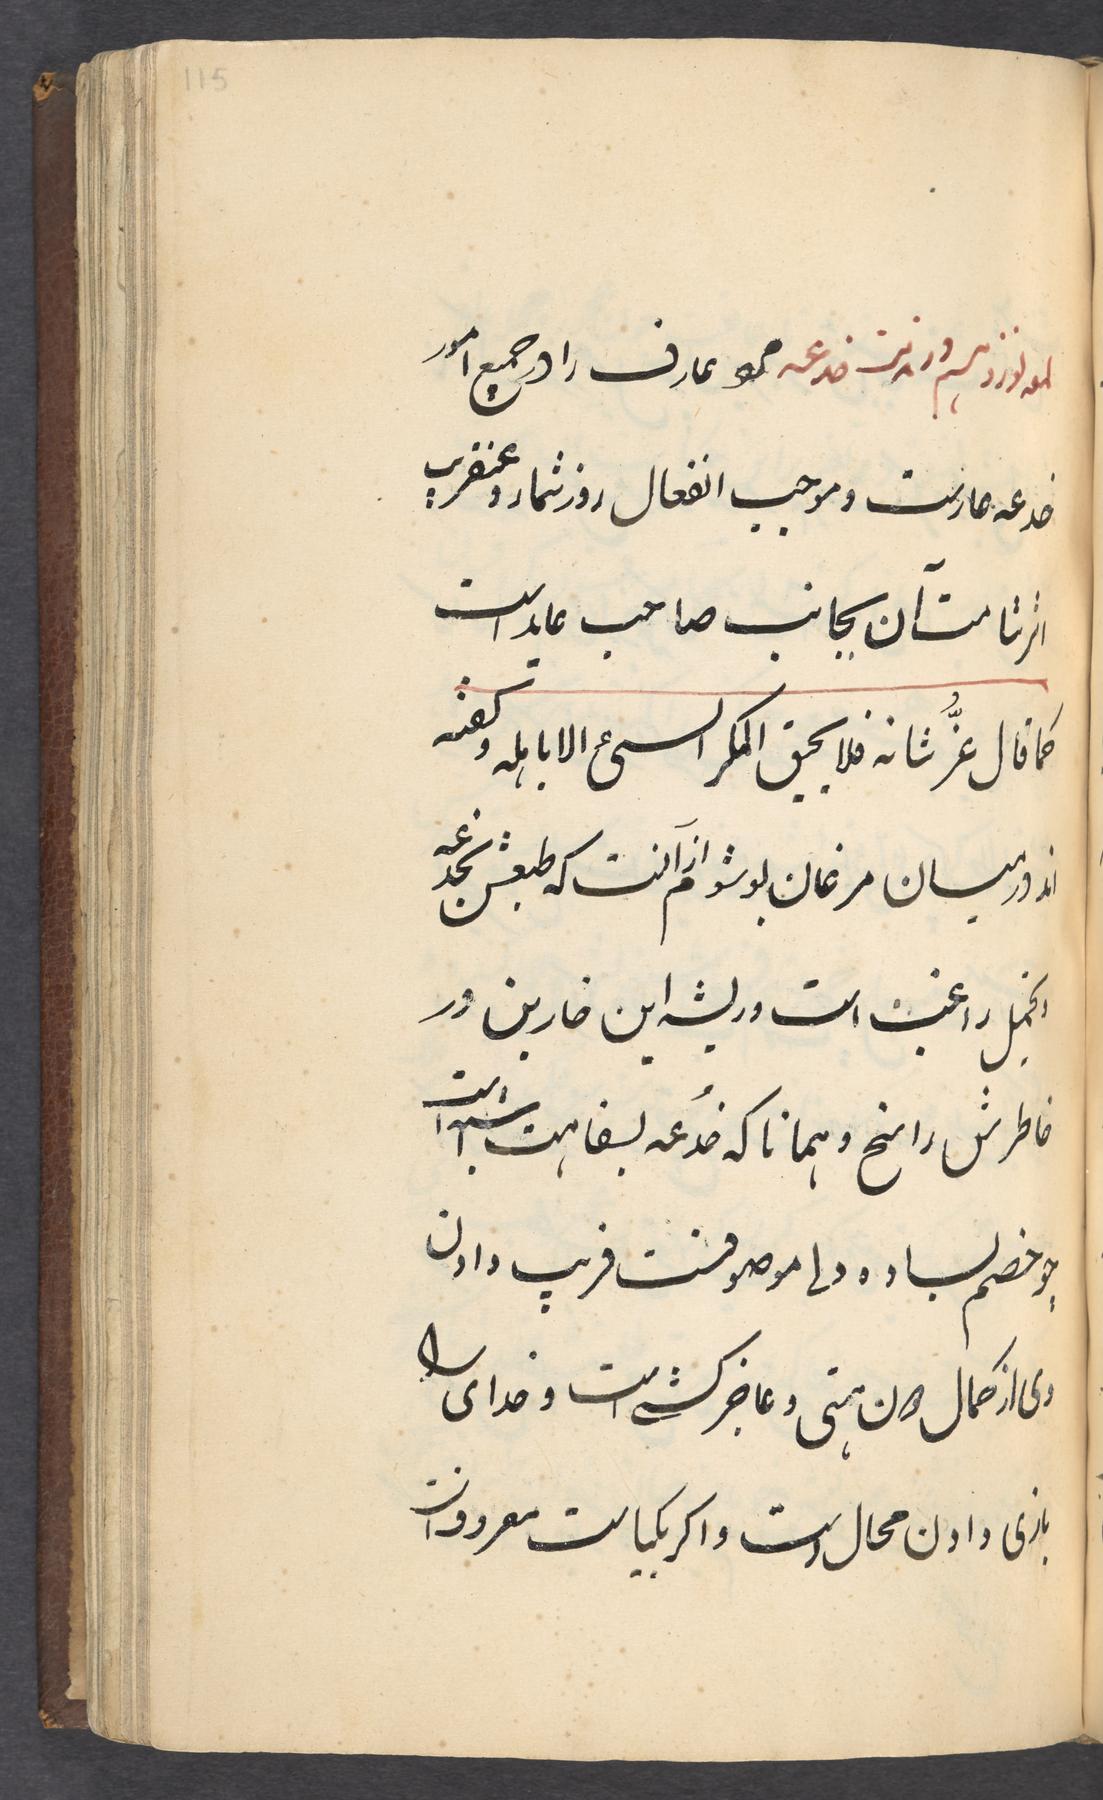 115
لمعه نوزدهم در مذمت خدعه مرد عارف را در جمیع امور
خدعه عارست و موجب انفعال روز شمار و عنقریب
اثر شامت آن بجانب صاحب عایدست
کما قال عزّ شانه فلا یحیق المکر السیء الا باهله و کفته
اند در میان مردمان بد شوم آنست که طبعش بخدعه
و تخیل راغبست است و ریشه این خاربن در
خاطرش راسخ و همانا که خُدعه بسفاهت است
چو خصم بساده دلی موصوفست فریب دادن
وی از کمال دون همتی و عاجز کشی است و خدای را
بازی دادن محال است و اکر بکیاست معروفست